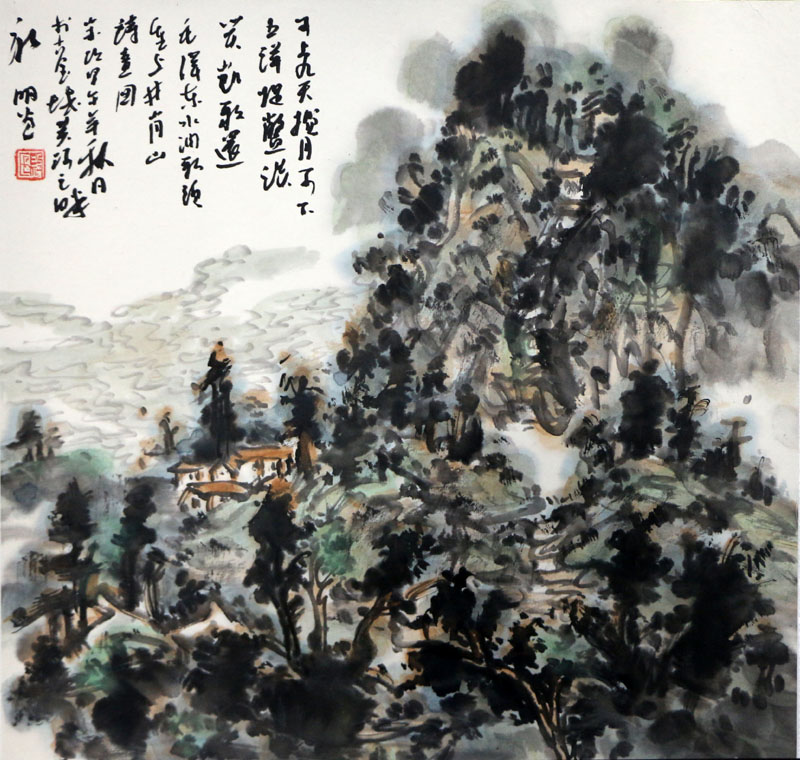 可上九天揽月可下
五洋捉鳖谈
笑凯歌還
毛泽东水调歌头
重上井冈山
詩意图
岁次甲午年秋月
于古金城黄河之畔
永明